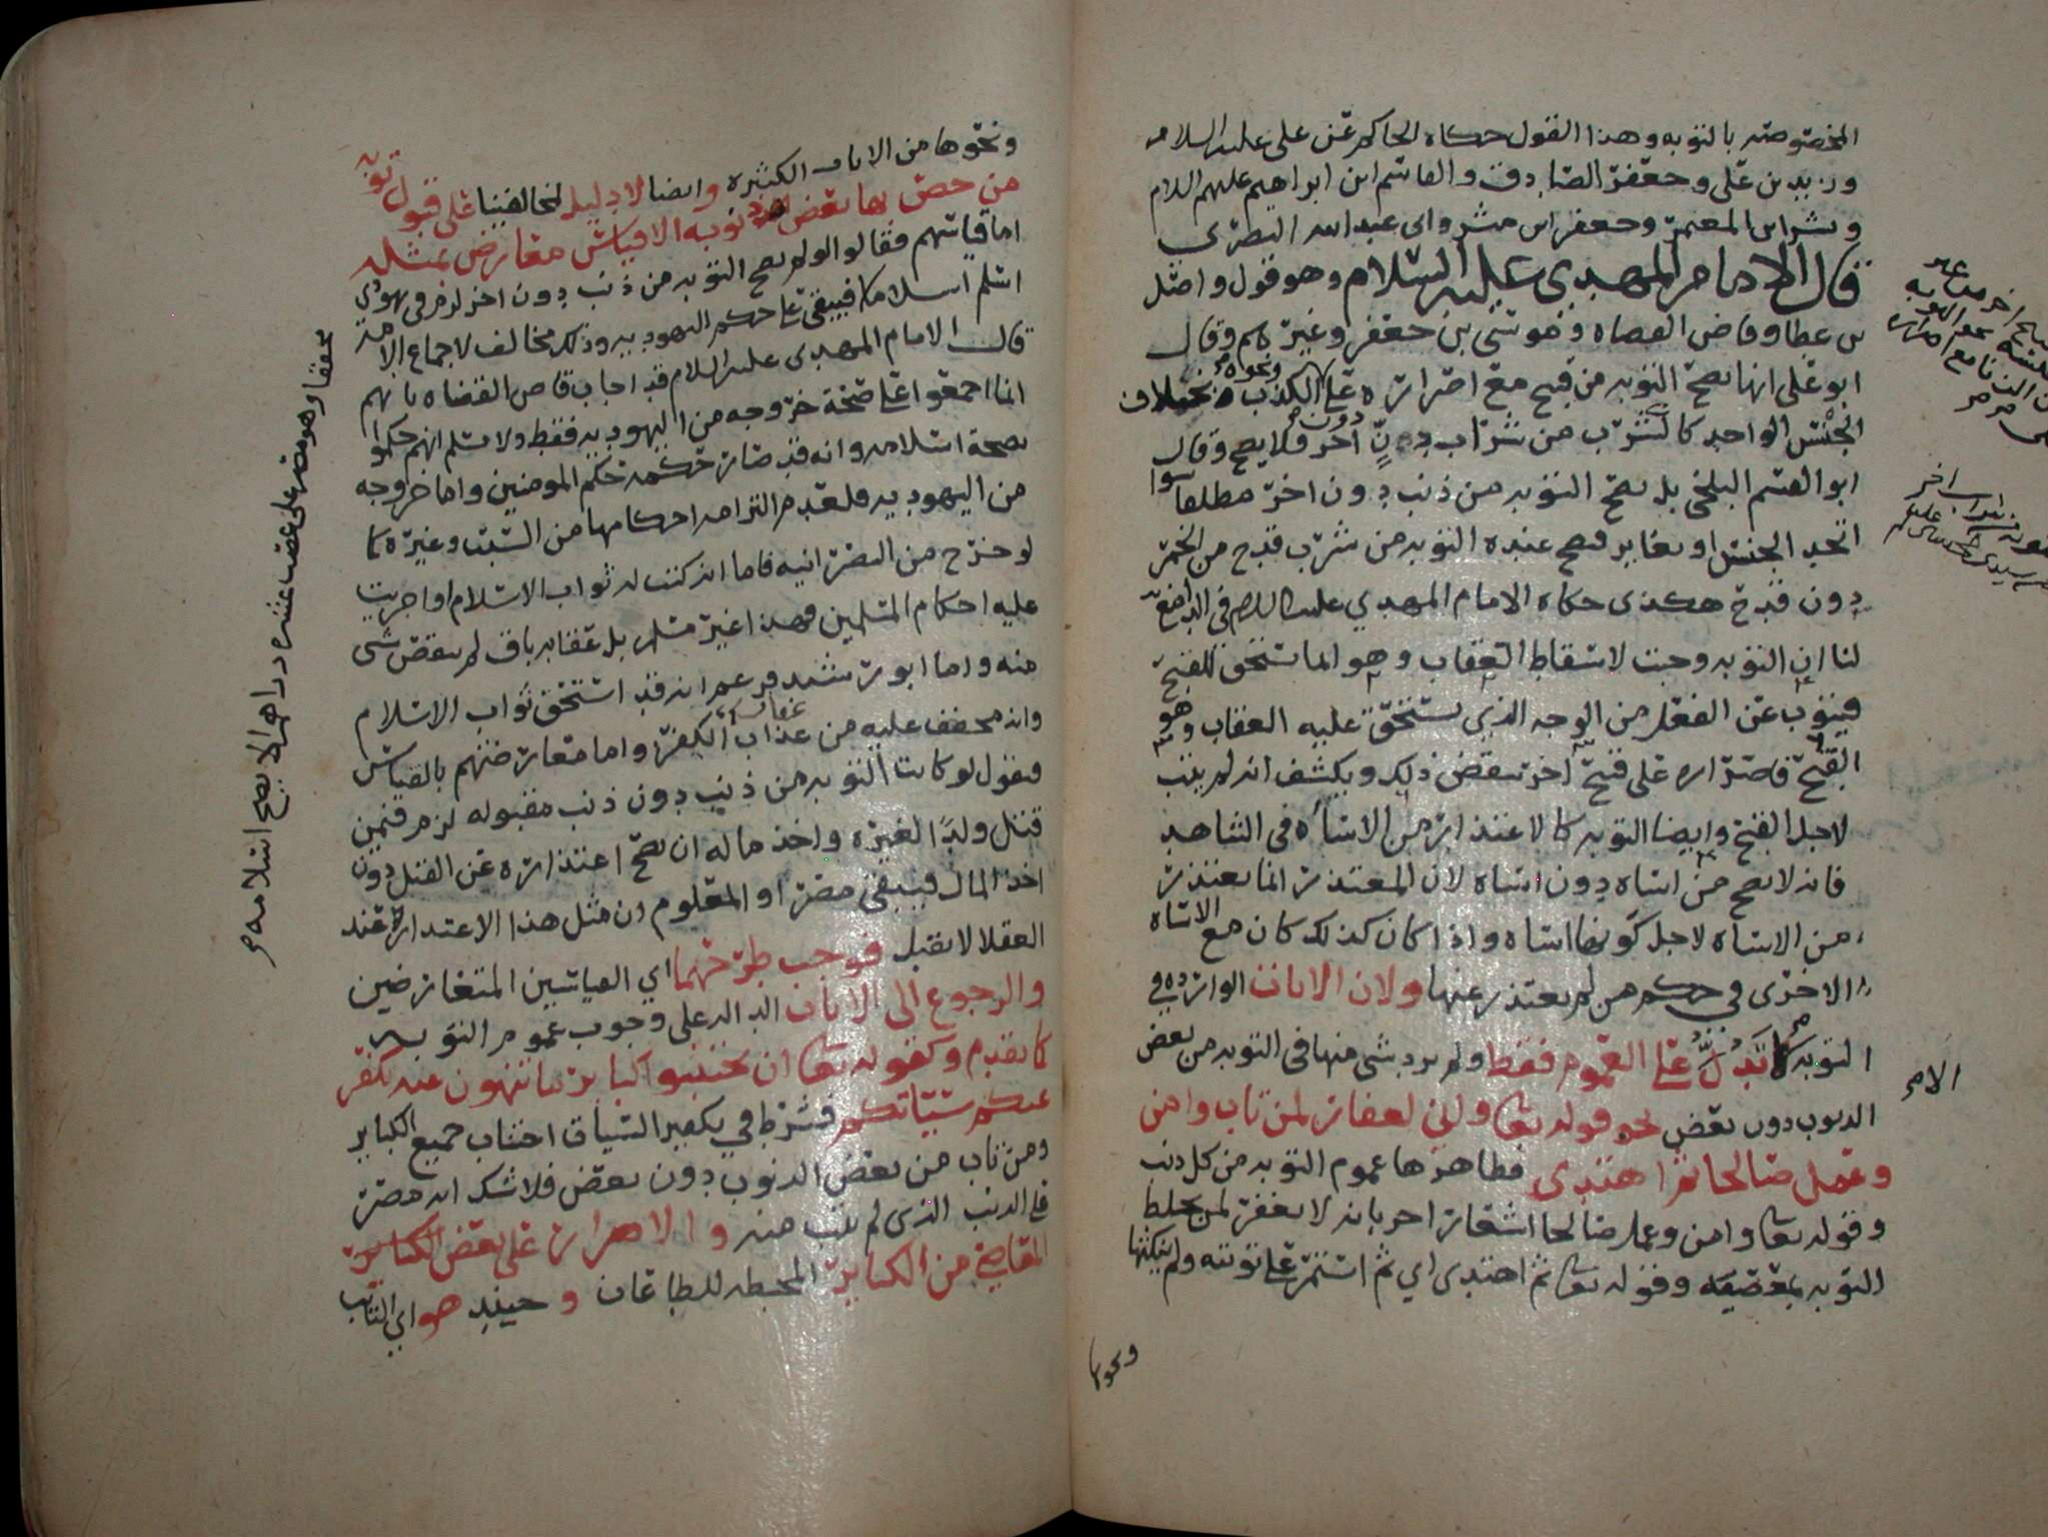 المخصوصه بالتوبه وهذا القول حكاه الحاكم عن علي عليه السلام
وزيد بن علي وجعفر الصادق والقاسم ابن ابراهيم عليهم السلام
وبشر ابن المعتمر وجعفر ابن مبشر وابي عبد الله البصري
قال الامام المهدي عليه السلام وهو قول واصل
بن عطا وقاضي القضاه وموسى بن جعفر وغيرهم وقال
ابو علي انها تصح التوبه من قبيح مع اصراره على الكذب ونحوه
الجنس الواحد كالشرب من شراب دون آخر فلا يصح وقال
ابو القسم البلخي بل تصح التوبه من ذنب دون اخر مطلقا سوا
اتحد الجنس او تغاير فتصح عنده التوبه من شرب قدح من الخمر
دون قدح هكذى حكاه الامام المهدي عليه السلام في
لنا ان التوبه وجبت لاسقاط العقاب وهو انما يستحق للقبح
فيتوب عن الفعل من الوجه الذي يستحق عليه العقاب وهو
القبح فاصراره على قبيح آخر ينقض ذلك ويكشف انه لم يتب
لاجل القبح وايضا التوبه كالاعتذار من الاساه في الشاهد
فانه لا يصح من اساه دون اساه لان المعتذر انما يعتذر
من الاساه لاجل كونها اساه واذا كان كذلك كان مع الاساه
الاخرى في حكم من لم يعتذر عنها ولان الايات الوارده في
التوبه تدل على العموم فقط ولم يرد شي منها في التوبه من بعض
الذنوب دون بعض نحو قوله تعا واني لغفار لمن تاب وامن
وعمل صالحا ثم اهتدى فظاهرها عموم التوبه من كل ذنب
وقوله تعا وامن وعمل صالحا اشعار اخر بانه لا يغفر لمن يخلط
التوبه بمعصيته وقوله تعا ثم اهتدى اي ثم استمر على توبته ولم ينكثها
ونحوها
الام
ونحوها من الايات الكثيره وايضا لا دليل لمخالفينا على قبول توبة
من خص بها بعض ذنوبه الا قياس معارض بمثله
اما قياسهم فقالوا لو لم تصح التوبه من ذنب دون اخر لزم في يهودي
اسلم اسلاما فيبقى على حكم اليهوديه وذلك مخالف لاجماع الامة
قال الامام المهدي عليه السلام قد اجاب قاضي القضاه بانهم
انما اجمعوا على صحة خروجه من اليهوديه فقط ولا نسلم انهم حكموا
بصحة اسلامه وانه قد صار حكمه حكم المومنين واما خروجه
من اليهوديه فلعدم التزامه احكامها من السبت وغيره كما
لو خرج من النصرانيه فاما انه كتب له ثواب الاسلام او اجريت
عليه احكام المسلمين فهذا غير مسلم بل عقابه باق لم ينقص شي
منه واما ابو رشيد فزعم انه قد استحق ثواب الاسلام
وانه مخفف عليه من عذاب عقاب الكفر واما معارضتهم بالقياس
فنقول لو كانت التوبه من ذنب دون ذنب مقبوله لزم فيمن
قتل ولدًا لغيره واخذ ماله ان يصح اعتذاره عن القتل دون
اخذ المال فيبقى مصرا والمعلوم ان مثل هذا الاعتذار عند
العقلا لا يقبل فوجب طرحهما اي القياسين المتعارضين
والرجوع الى الايات الداله على وجوب عموم التوبه
كما تقدم وكقوله تعا ان تجتنبوا كباير ما تنهون عنه نكفر
عنكم سيّاتكم فشرط في تكفير السيات اجتناب جميع الكباير
ومن تاب من بعض الذنوب دون بعض فلا شك انه مصر
على الذنب الذي لم يتب منه والاصرار على بعض
المعاصي من الكباير المحبطه للطاعات وحينيذ هو اي التايب
محققا وهو مصر على غصب عشره دراهم لا يصح اسلامه